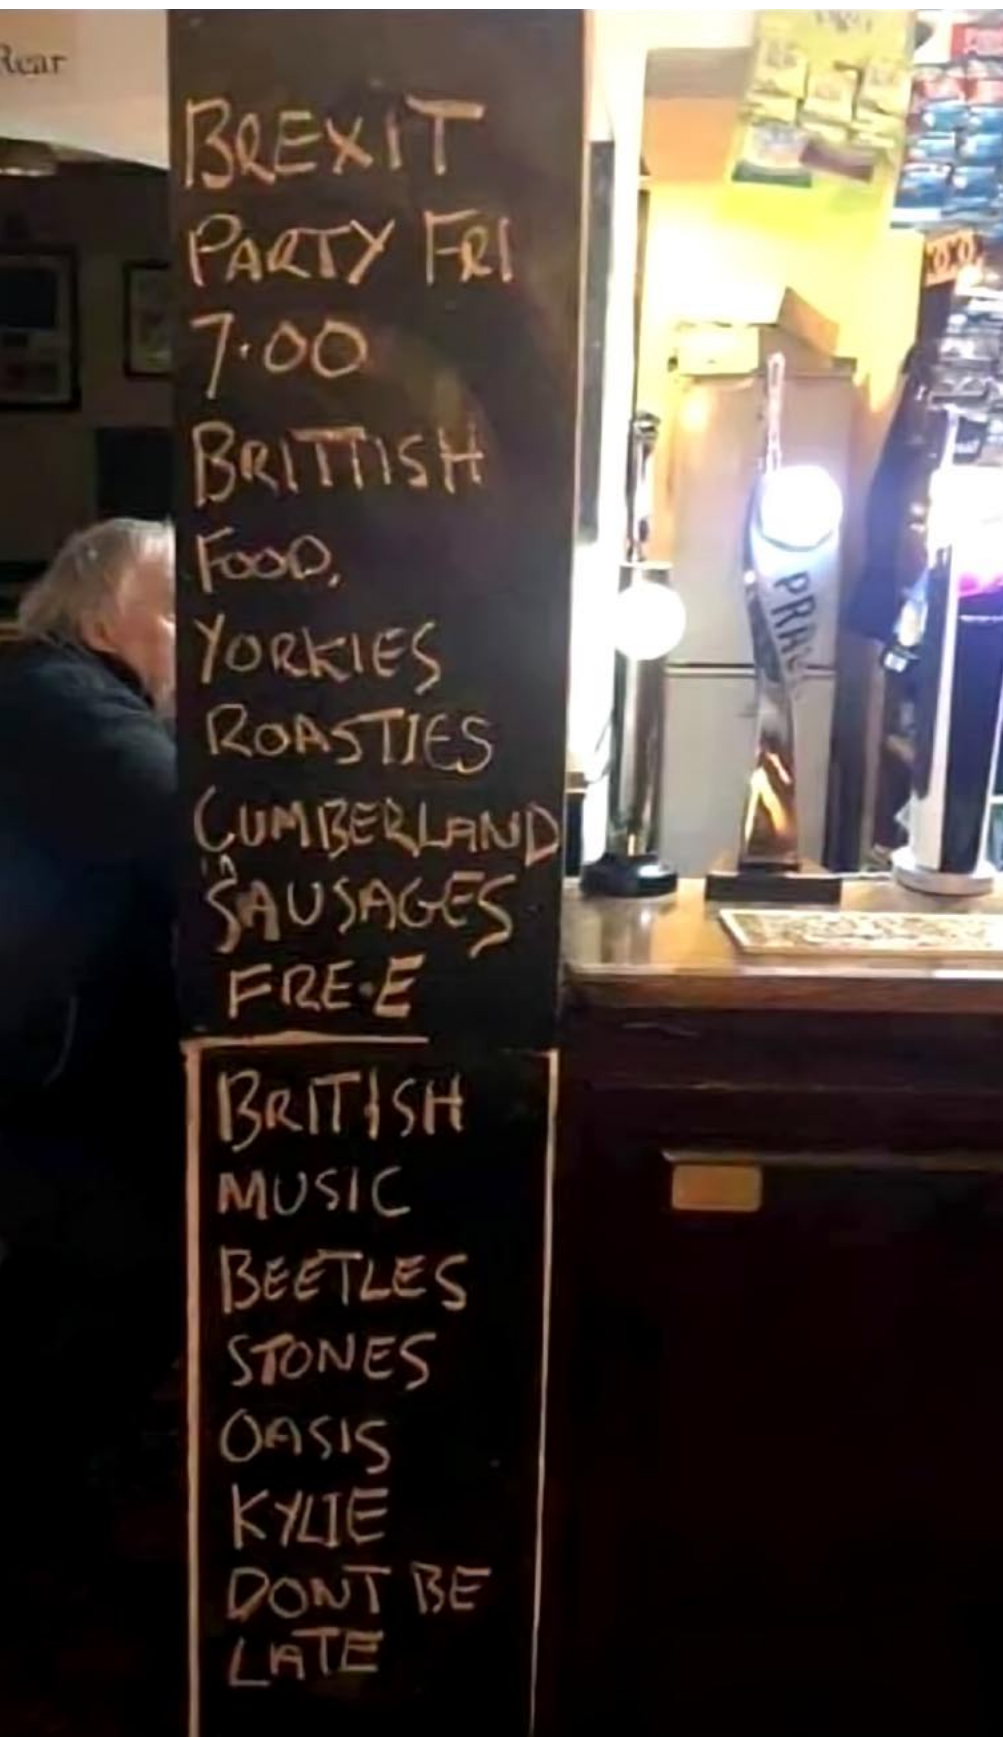 Rear
BREXIT
PARTY FRI
7.00
BRITTISH
FOOD.
YORKIES
ROASTIES
CUMBERLAND
SAUSAGES
FRE.E
BRITISH
MUSIC
BEETLES
STONES
OASIS
KYLIE
DONT BE
LATE